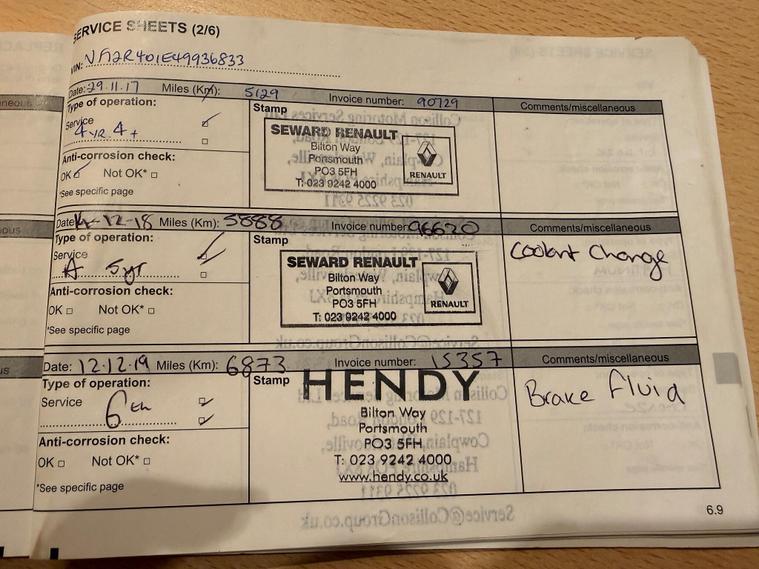 SERVICE SHEETS (2/6)
VIN:
Date: 29.11.17 Miles (Km): 5129 Invoice number: 90729 Comments/miscellaneous
Type of operation:
Service
4 yr. A +
Anti-corrosion check:
OK Not OK*
*See specific page
Stamp
SEWARD RENAULT
Bilton Way
Portsmouth
PO3 5FH
T: 023 9242 4000
RENAULT
Date: 14-12-18 Miles (Km): 5888 Invoice number: 96620 Comments/miscellaneous
Type of operation:
Service
A 5yr
Anti-corrosion check:
OK Not OK*
*See specific page
Stamp
SEWARD RENAULT
Bilton Way
Portsmouth
PO3 5FH
T: 023 9242 4000
RENAULT
Coolant Change
Date: 12.12.19 Miles (Km): 6873 Invoice number: 15357 Comments/miscellaneous
Type of operation:
Service
6th
Anti-corrosion check:
OK Not OK*
*See specific page
Stamp
HENDY
Bilton Way
Portsmouth
PO3 5FH
T: 023 9242 4000
www.hendy.co.uk
Brake Fluid
6.9